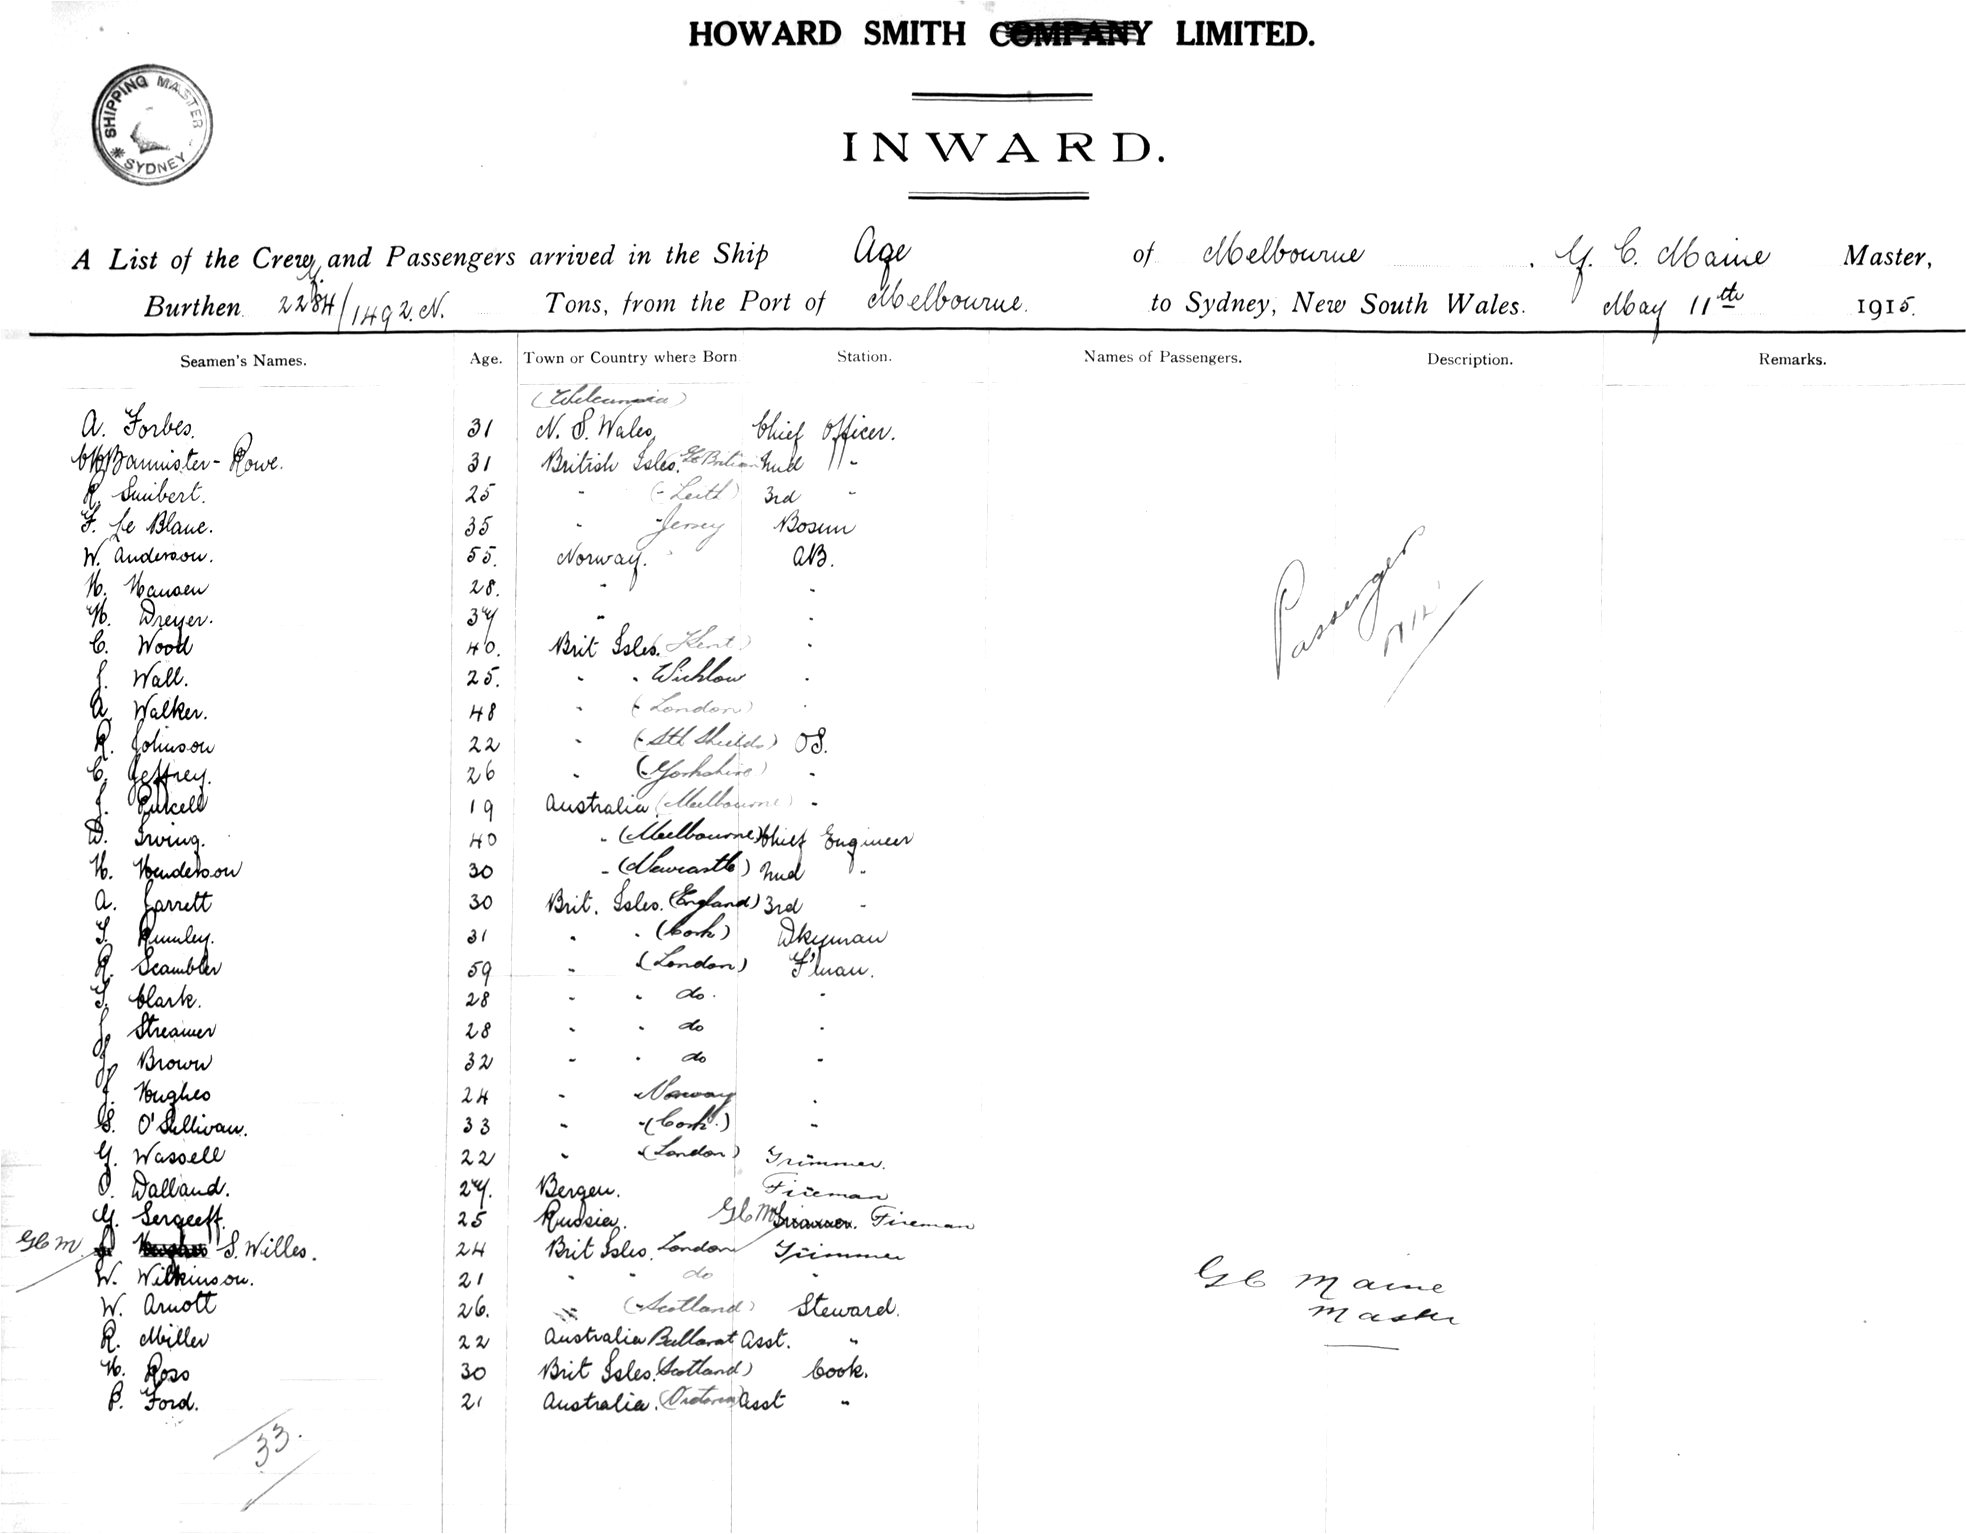 HOWARD SMITH COMPANY LIMITED.
SHIPPING MASTER
SYDNEY
INWARD.
A List of the Crew and Passengers arrived in the Ship Age of Melbourne G. C. Maine Master,
Burthen 2284/1492.N. Tons, from the Port of Melbourne. to Sydney, New South Wales. May 11th 1915.
Seamen's Names. Age. Town or Country where Born Station. Names of Passengers. Description. Remarks.
A. Forbes. 31 N. S. Wales, Chief Officer.
Bannister-Rowe. 31 British Isles. 2nd "
R. Smibert. 25 " (" Leith) 3rd "
F. Le Blanc. 35 " " Jersey Bosun
W. Anderson. 55. Norway. AB.
H. Hansen 28. " "
H. Dreyer. 37 " "
C. Wood 40. Brit Isles. (Kent) "
J. Wall. 25. " " Wicklow "
A. Walker. 48 " (" London) "
R. Johnson 22 " (" Sth Shields) OS.
C. Jeffrey. 26 " (" Yorkshire) "
J. Purcell 19 Australia (Melbourne) "
D. Irving. 40 " (Melbourne) Chief Engineer
H. Henderson 30 " (Newcastle) 2nd "
A. Jarrett 30 Brit. Isles. (England) 3rd "
T. Rumley. 31 " " (Cork) Dkyman
R. Scambler 59 " (London) F'man.
T. Clark. 28 " " do. "
J. Streamer 28 " " do "
J. Brown 32 " " do "
J. Hughes 24 " " Norway "
S. O'Sullivan. 33 " "(Cork.) "
G. Wassell 22 " "(London) Trimmer.
O. Dalland. 27. Bergen. Fireman
G. Sergeeff. 25 Russia. GCM Trimmer. Fireman
GCM S. Willes. 24 Brit Isles. London Trimmer
W. Wilkinson. 21 " " do "
W. Arnott 26. (" Scotland) Steward.
R. Miller 22 Australia Ballarat Asst. "
H. Ross 30 Brit Isles. (Scotland) Cook.
P. Ford. 21 Australia. (Victoria) Asst "
Passenger
Nil
GC Maine
Master
33.